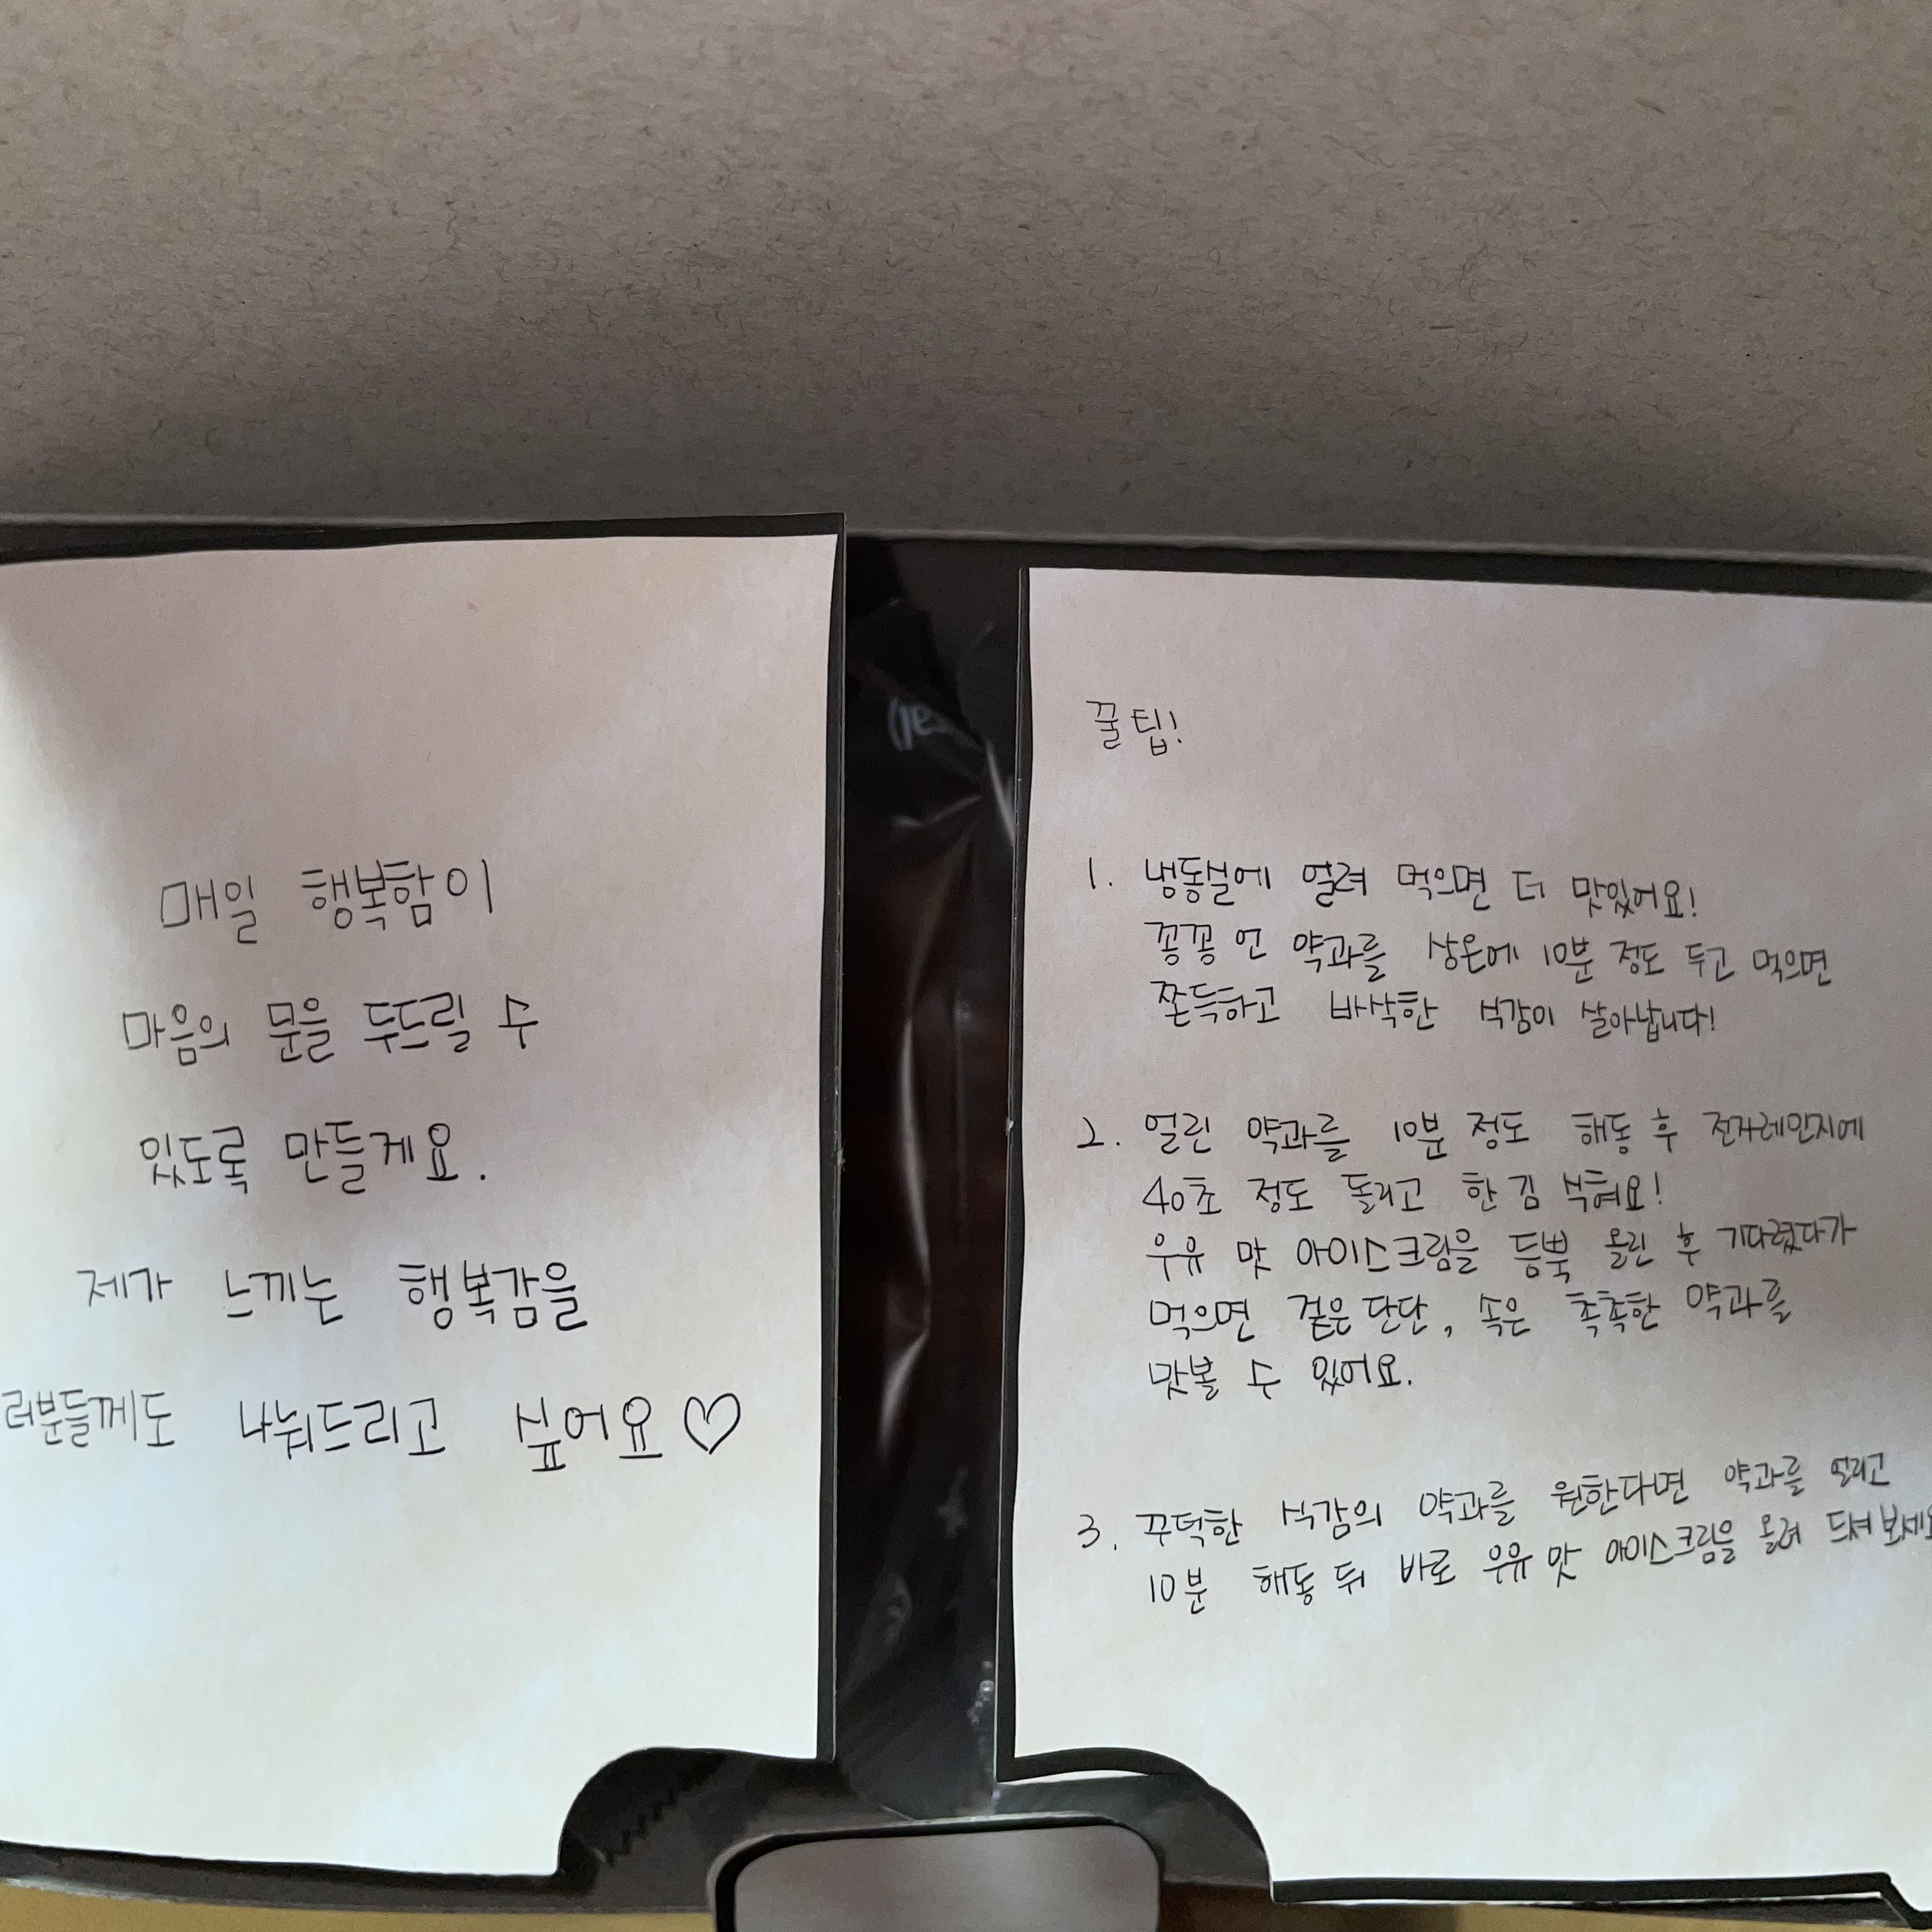 매일 행복함이
마음의 문을 두드릴 수
있도록 만들게요.
제가 느끼는 행복감을
러분들께도 나눠드리고 싶어요♡
꿀팁!
1. 냉동실에 얼려 먹으면 더 맛있어요!
꽁꽁 언 약과를 상온에 10분 정도 두고 먹으면
쫀득하고 바삭한 식감이 살아납니다!
2. 얼린 약과를 10분 정도 해동 후 전자레인지에
40초 정도 돌리고 한 김 식혀요!
우유 맛 아이스크림을 듬뿍 올린 후 기다렸다가
먹으면 겉은 단단, 속은 촉촉한 약과를
맛볼 수 있어요.
3. 꾸덕한 식감의 약과를 원한다면 약과를 얼리고
10분 해동 뒤 바로 우유 맛 아이스크림을 올려 드셔보세요